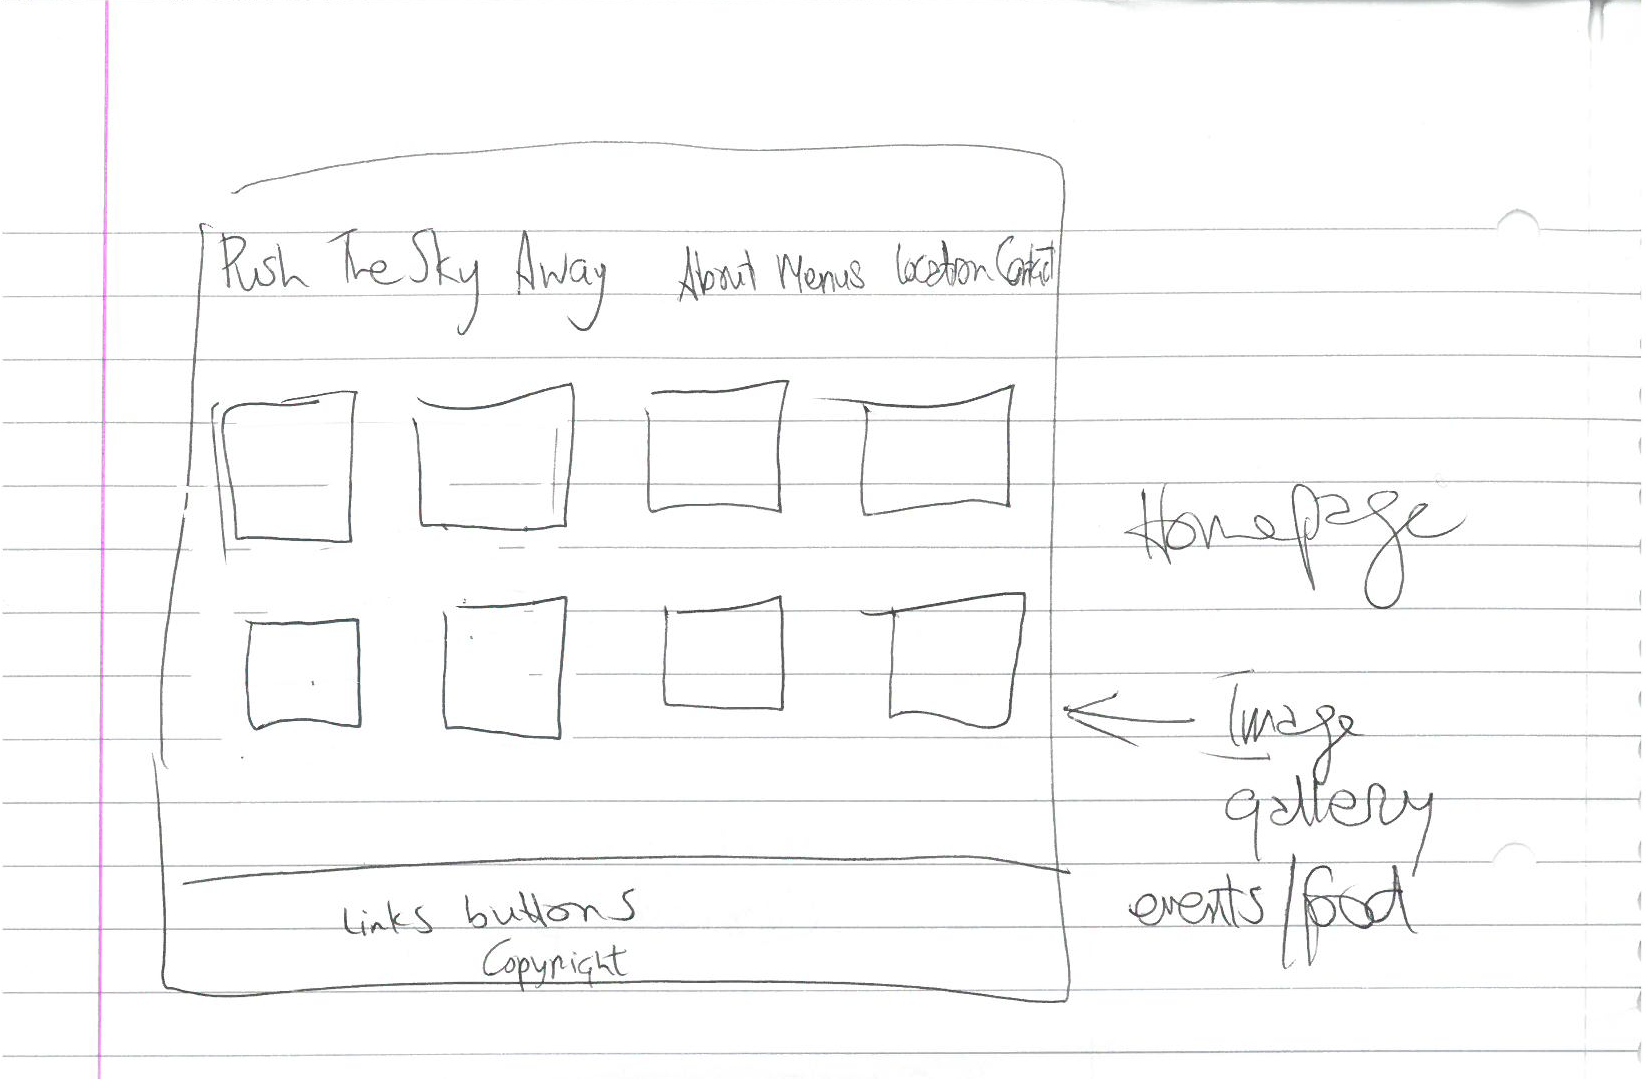 Push The Sky Away About Menus Location Contact
Homepage
Image
gallery
events/food
Links buttons
Copyright